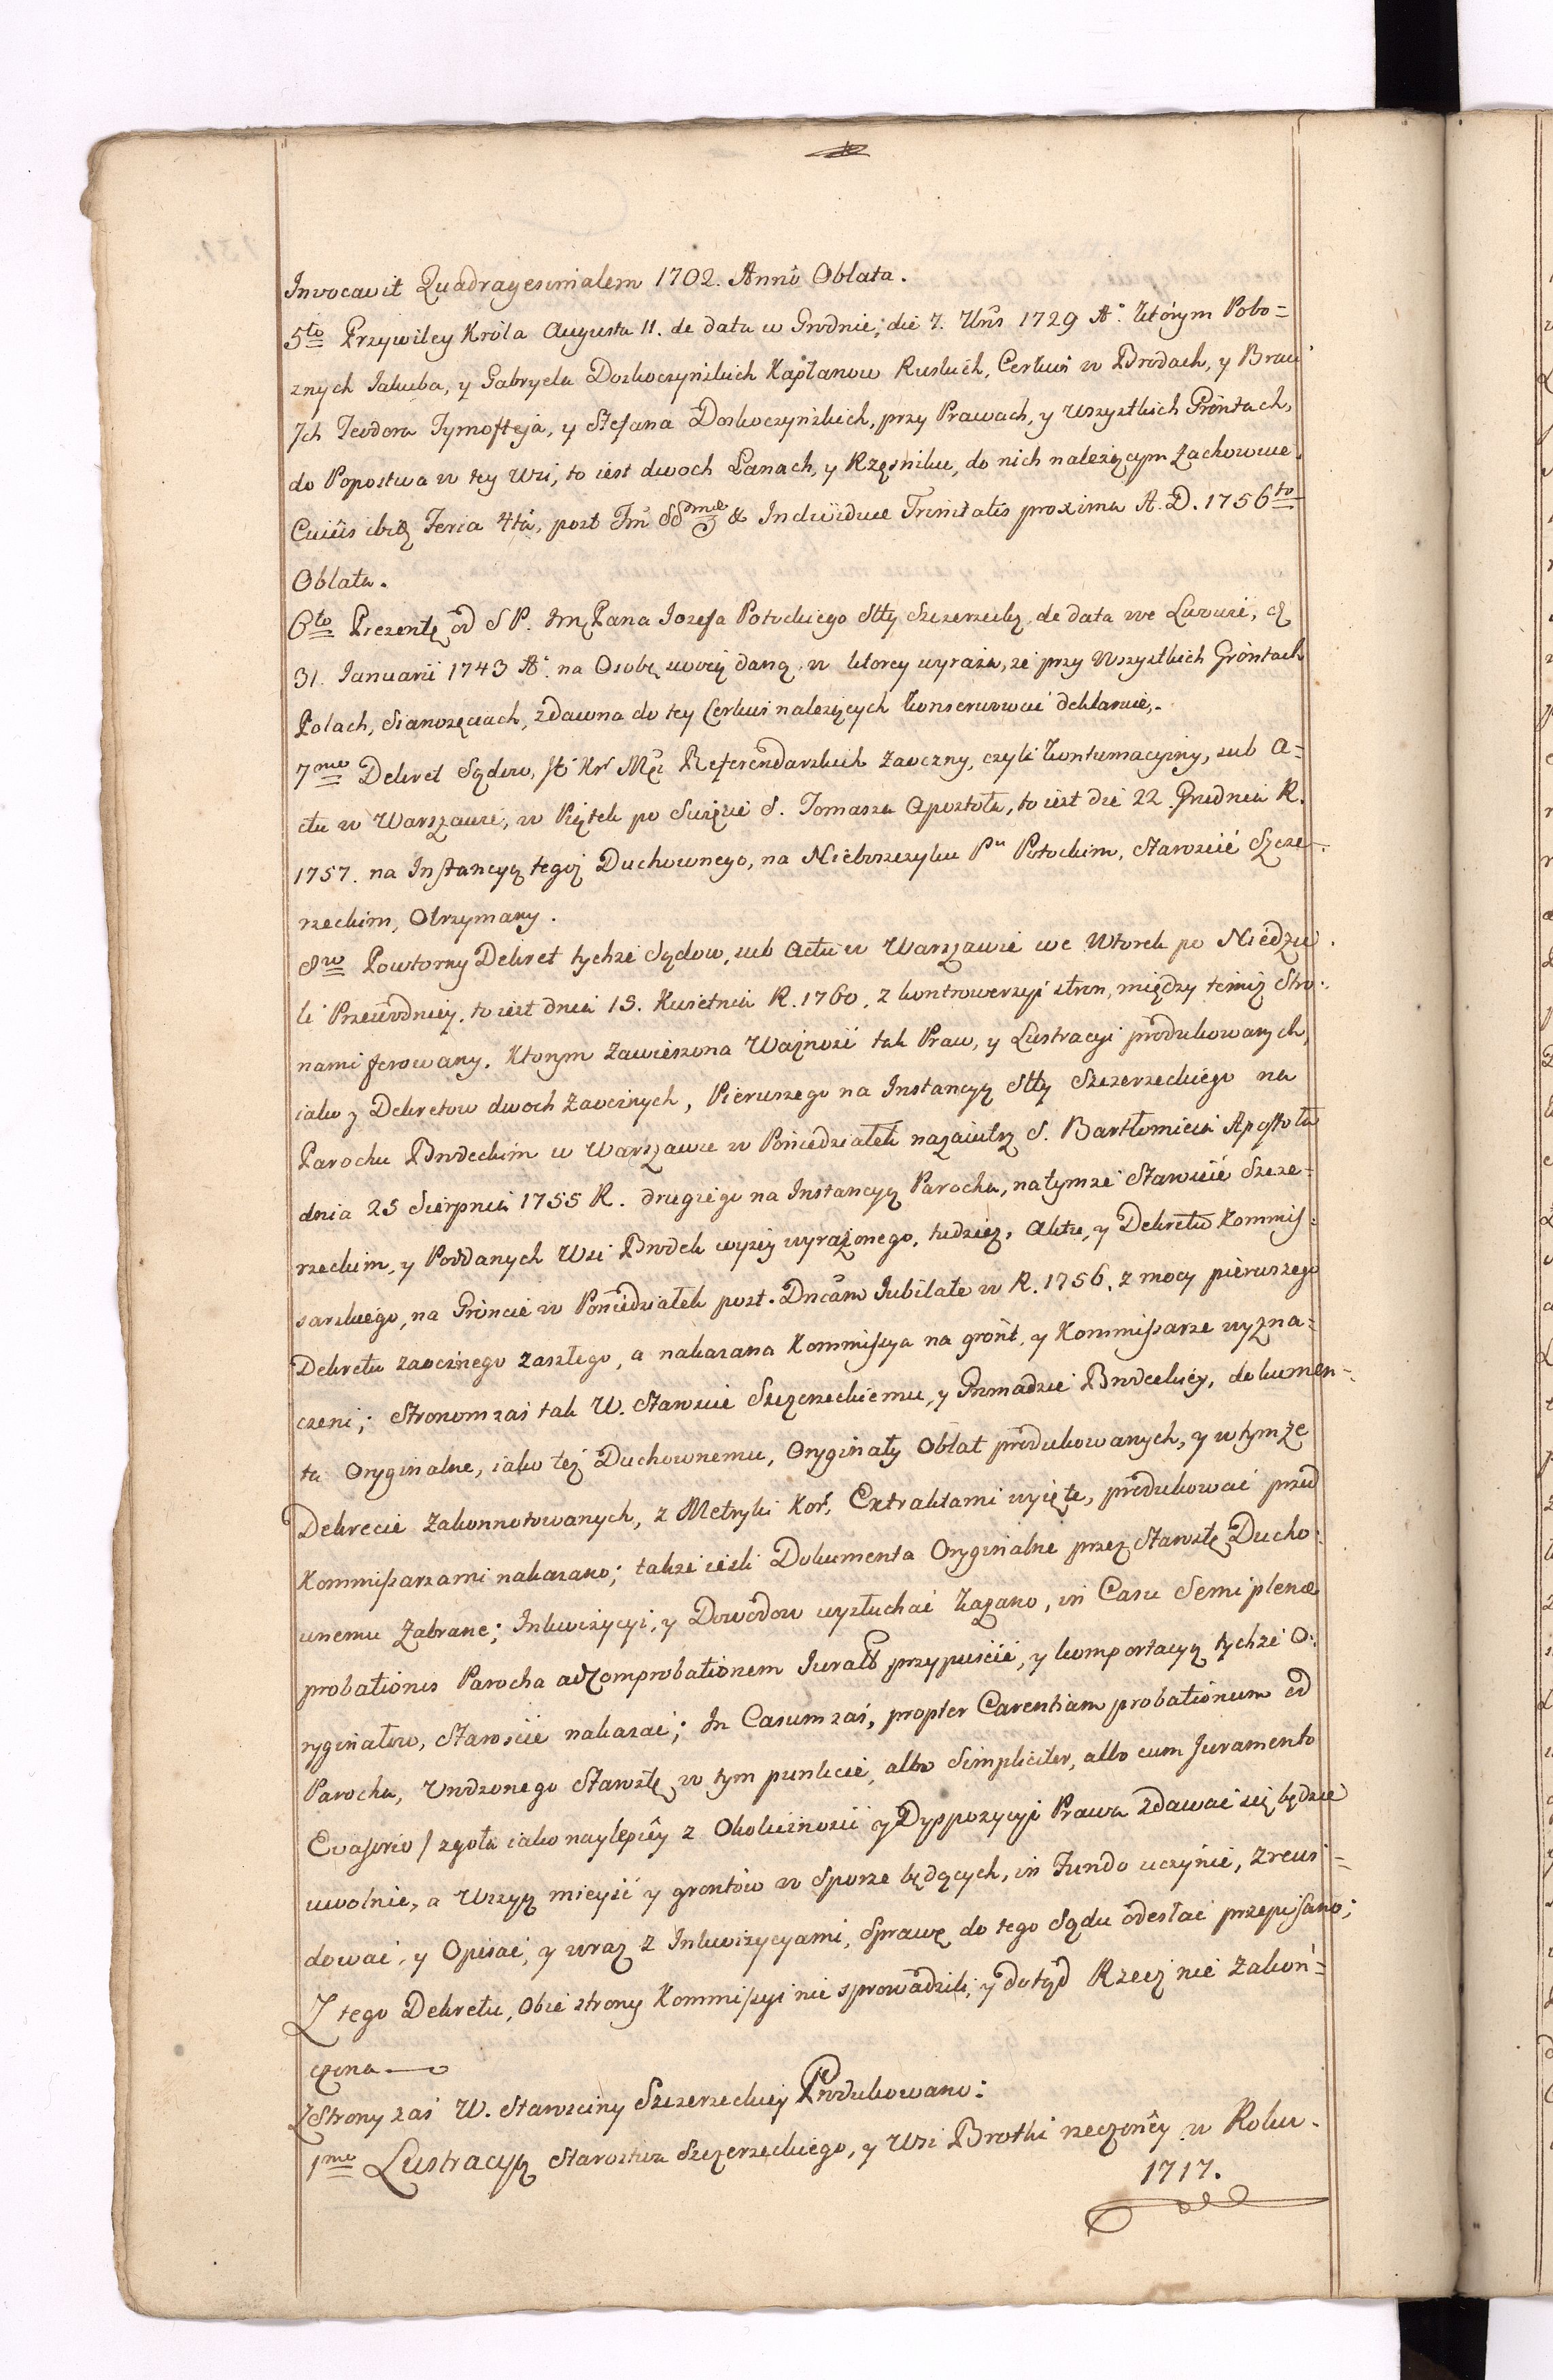 Invocavit Quadragesimalem 1702. Anno Oblata.
5to Przywiley Króla Augusta II. de data w Grodnie, die 7. Xbris 1729 A. którym Pobo=
znych Jakuba, y Gabryela Doskoczyńskich Kapłanow Ruskich, Cerkwi w Brodach, y Braci
Ich Teodora Tymofteja, y Stefana Doskoczyńskich, przy Prawach, y wszystkich Gróntach,
do Popostwa w tey wsi, to iest dwoch Łanach, y Rzęśniku, do nich należącym zachowuie.
Cuius ibidem Feria 4ta, post Fm SSmae & Individuae Trinitatis proxima A. D. 1756to
Oblata.
6to Prezentę od S P. Jmę Pana Jozefa Potockiego Stty Szczerzeckę, de data we Lwowie,
31. Januarii 1743 A. na Osobę swoię daną, w ktorey wyraża, że przy wszystkich Gróntach
Polach, Sianożęciach, zdawna do tey Cerkwi należących konserwować deklaruie.
7mo Dekret Sądow, JK Mci Referendarskich zaoczny, czyli kontumacyiny, sub A=
ctu w Warszawie, w Piątek po Święcie S. Tomasza Apostoła, to iest die 22. Grudnia R.
1757. na Instancyą tegoż Duchownego, na Nieboszczyku Pu Potockim, Staroście Szcze=
rzeckim, Otrzymany.
8vo Powtorny Dekret tychże Sądow, sub Actu w Warszawie we Wtorek po Niedzie=
li Przewodniey, to iest dnia 15. Kwietnia R. 1760, z kontrowersyi stron, między temiż Stro=
nami ferowany. Ktorym zawieszona Ważność tak Praw, y Lustracyi produkowanych,
iako z Dekretow dwoch zaocznych, Pierwszego na Instancyą Stty Szczerzeckiego na
Parochu Brodeckim w Warszawie w Poniedziałek nazaiutrz S. Bartłomieia Apostoła
dnia 25 Sierpnia 1755 R. drugiego na Instancyą Parocha, na tymże Staroście Szcze=
rzeckim, y Poddanych Wsi Brodek wyżey wyrażonego, tudzież, Aktu, y Dekretu Kommis=
sarskiego, na Gróncie w Poniedziałek post. Dncam Jubilate w R. 1756, z mocy pierwszego
Dekretu zaocznego zaszłego, a nakazana Kommissya na gront, y Kommissarze wyzna=
czeni; Stronom zaś tak W. Staroście Szczerzeckiemu, y Gromadzie Brodeckiey, dokumen=
ta Oryginalne, iako też Duchownemu, Oryginały Oblat produkowanych, y w tymże
Dekrecie zakonnotowanych, z Metryki Kor. Extraktami wyięte, produkować przed
Kommissarzami nakazano; także ieśli Dokumenta Oryginalne przez Starostę Ducho=
wnemu zabrane; Inkwizycyi, y Dowodow wysłuchać kazano, in Casu Semi plenae
probationis Parocha ad Comprobationem Juratt przypuścić, y komportacyą tychże O=
ryginałow, Staroście nakazać; In Casum zaś, propter Carentiam probationum od
Parocha, Urodzonego Starostę w tym punkcie, albo Simpliciter, albo cum Juramento
Evasorio / zgoła iako naylepiey z Okoliczności y Dyspozycyi Prawa zdawać się będzie
uwolnić, a Wizyą mieysć y grontów w sporze będących, in Fundo uczynić, zrewi=
dować, y Opisać, y wraz z Inkwizycyami, Sprawę do tego Sądu odesłać przepisano;
Z tego Dekretu, Obie strony Kommissyi nie sprowadzili, y dotąd Rzecz nie zakoń=
czona
Z Strony zaś W. Starościny Szczerzeckiey Produkowano:
1mo Lustracyą Starostwa Szczerzeckiego, y Wsi Brotki rzeczoney w Roku
1717.